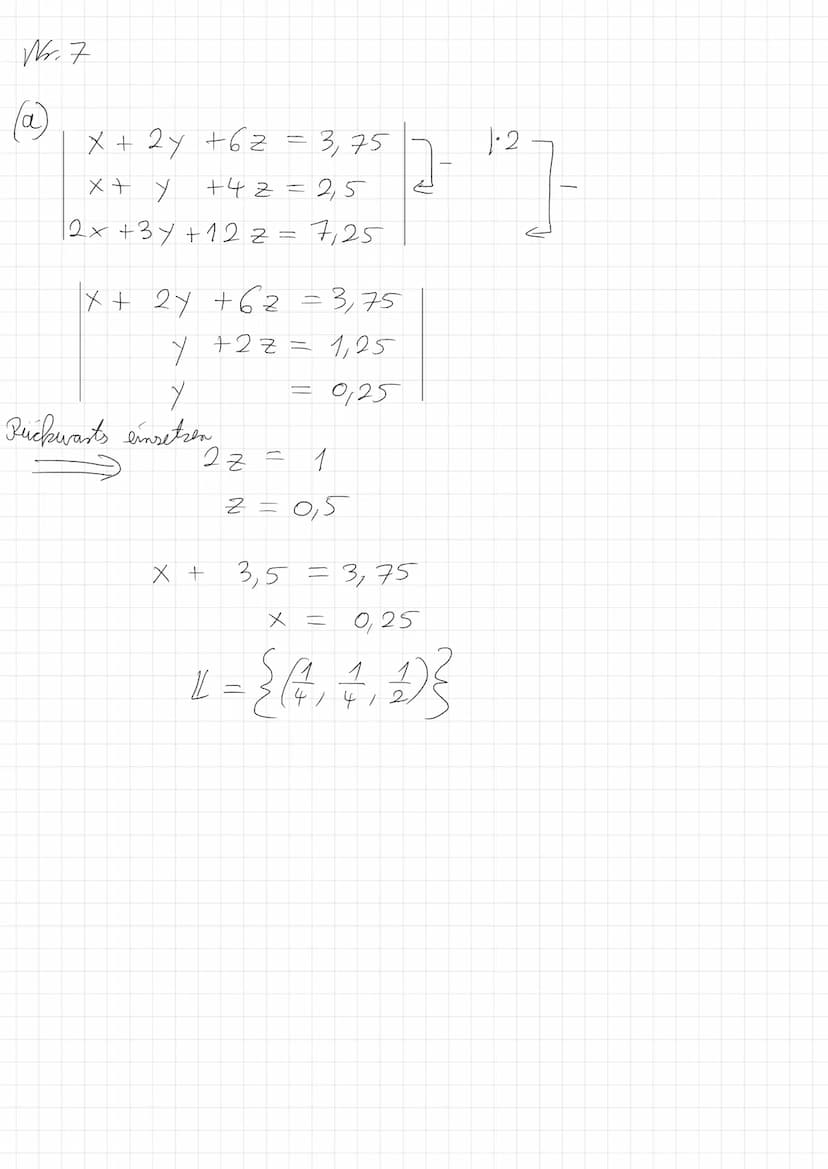 Nr. 7
(a)
| x + 2y + 6z = 3,75 | - |·2 -
| x + y + 4z = 2,5 |
| 2x + 3y + 12z = 7,25 |
| x + 2y + 6z = 3,75 |
y + 2z = 1,25
y = 0,25
Rückwarts einsetzen
⟹ 2z = 1
z = 0,5
x + 3,5 = 3,75
x = 0,25
𝕃 = {(1/4, 1/4, 1/2)}